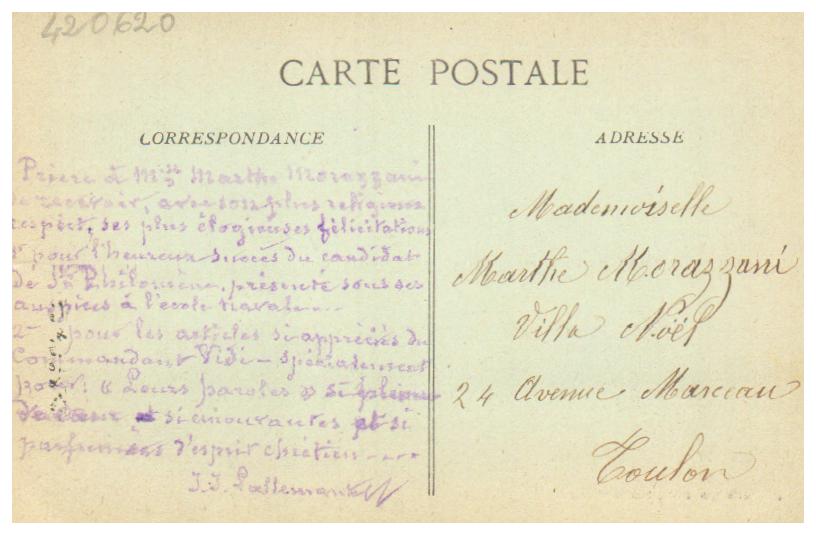 420620
CARTE POSTALE
CORRESPONDANCE
Prière à Mlle Marthe Morazzani
de recevoir, avec son plus religieux
respect, ses plus élogieuses félicitations
1° pour l'heureux succès du candidat
de Ste Philomène, présenté sous ses
auspices à l'école navale...
2° pour les articles si appréciés du
Commandant Vidi - spécialement
pour : « Leurs paroles » si
et si émouvantes et si
parfumées d'esprit chrétien ....
J. J. Lallemand
ADRESSE
Mademoiselle
Marthe Morazzani
Villa Noël
24 Avenue Marceau
Toulon